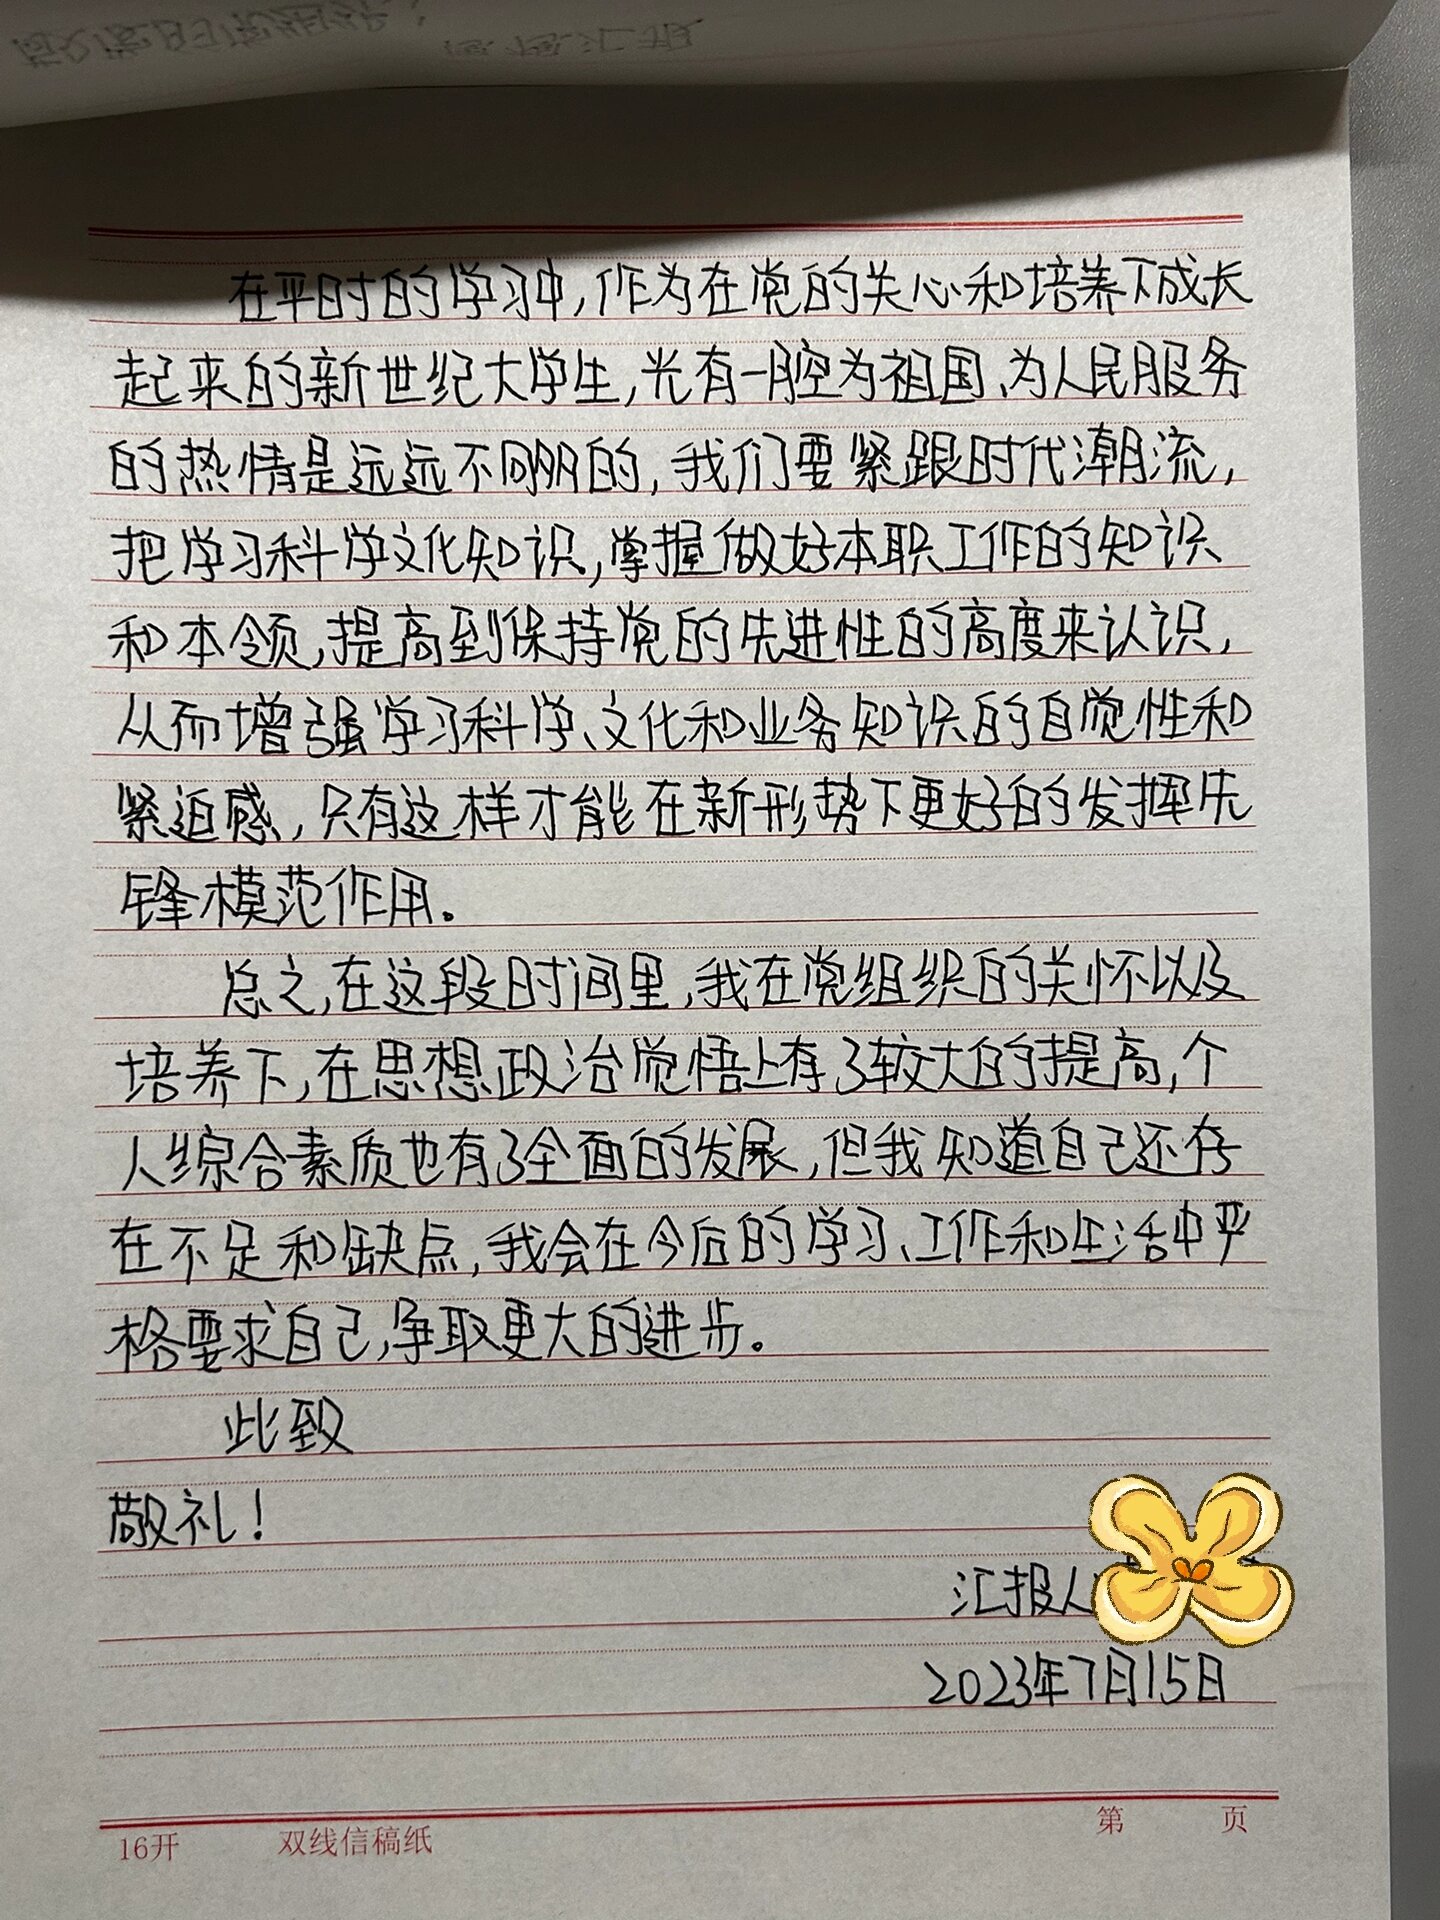 在平时的学习中,作为在党的关心和培养下成长
起来的新世纪大学生,光有一腔为祖国、为人民服务
的热情是远远不同朋的,我们要紧跟时代潮流,
把学习科学文化知识,掌握做好本职工作的知识
和本领,提高到保持党的先进性的高度来认识,
从而增强学习科学、文化和业务知识的自觉性和
紧迫感,只有这样才能在新形势下更好的发挥先
锋模范作用。
总之,在这段时间里,我在党组织的关怀以及
培养下,在思想政治觉悟上有了较大的提高,个
人综合素质也有了全面的发展,但我知道自己还存
在不足和缺点,我会在今后的学习、工作和生活中严
格要求自己,争取更大的进步。
此致
敬礼!
汇报人
2023年7月15日
16开 双线信稿纸 第 页